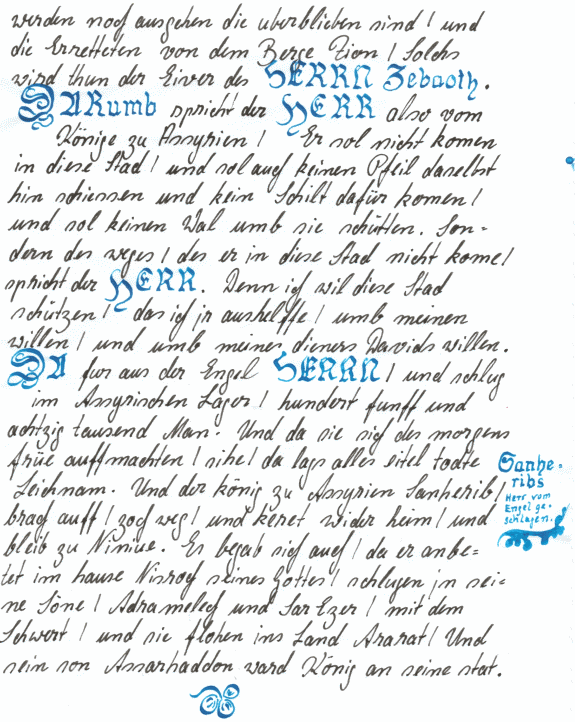 werden noch ausgehen die uberblieben sind / und
die Erretteten von dem Berge Zion / Solchs
wird thun der Eiver des HERRN Zebaoth.
DARumb spricht der HERR also vom
Könige zu Assyrien / Er sol nicht komen
in diese Stad / und sol auch keinen Pfeil daselbst
hin schiessen und kein Schilt dafür komen /
und sol keinen Wal umb sie schütten. Son-
dern des weges / des er in diese Stad nicht kome /
spricht der HERR. Denn ich wil diese Stad
schützen / das ich jr aushelffe / umb meinen
willen / und umb meines dieners Davids willen.
DA fur aus der Engel HERRN / und schlug
im Assyrischen Lager / hundert funff und
achtzig tausend Man. Und da sie sich des morgens
früe auffmachten / sihe / da lags alles eitel todte
Leichnam. Und der könig zu Assyrien Sanherib /
brach auff / zoch weg / und keret wider heim / und
bleib zu Ninive. Es begab sich auch / da er anbe-
tet im hause Nisroch seines Gottes / schlugen jn sei-
ne Söne / Adramelech und SarEzer / mit dem
Schwert / und sie flohen ins Land Ararat / Und
sein son Assarhaddon ward König an seine stat.
Sanhe-
ribs
Herr vom
Engel ge-
schlagen.